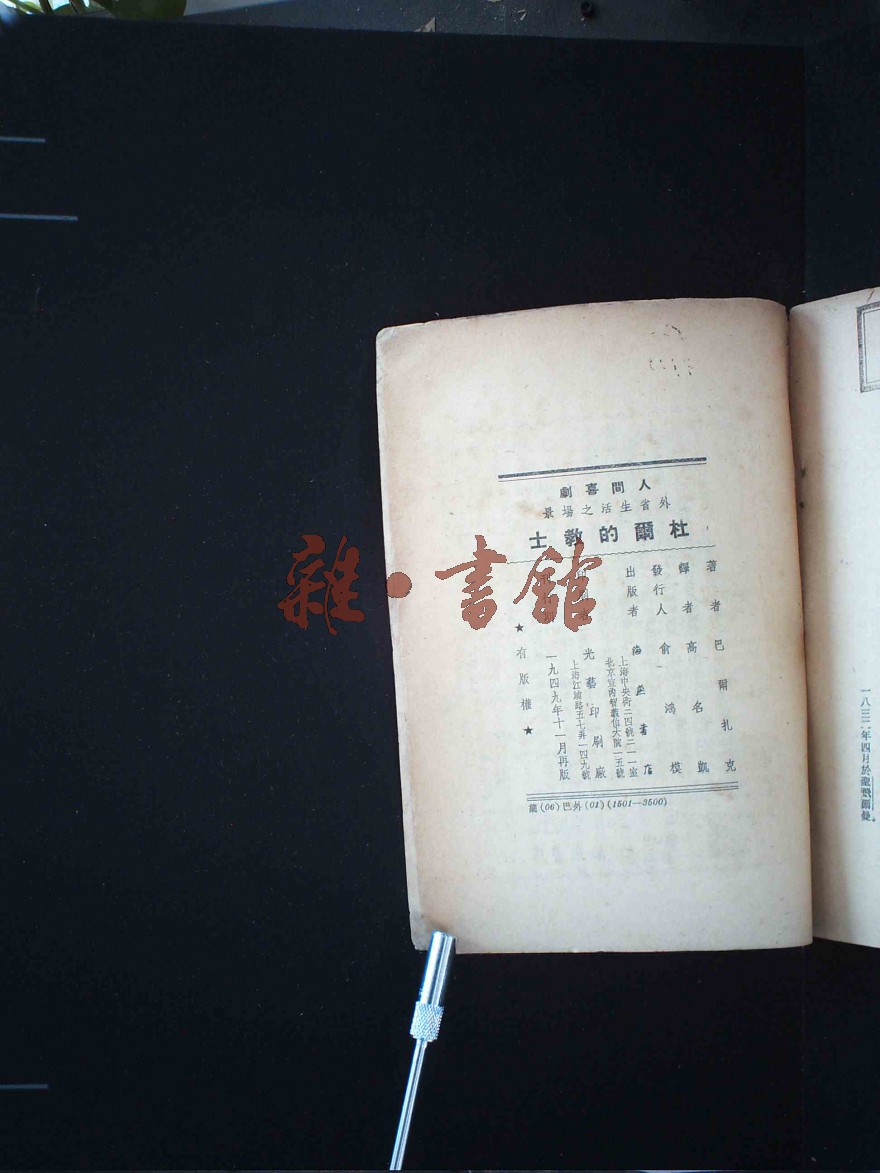 人間喜劇
外省生活之場景
杜爾的教士
著者 巴爾扎克
譯者 高名凱
發行人 俞鴻模
出版者 海燕書店
上海中央街二四號二一一室
光藝印刷廠
上海江浦路五七弄一四九號
一九四九年十一月再版
★有版權★
龍(06)巴外(01)(1501—3500)
一八三二年四月於
雜·書館